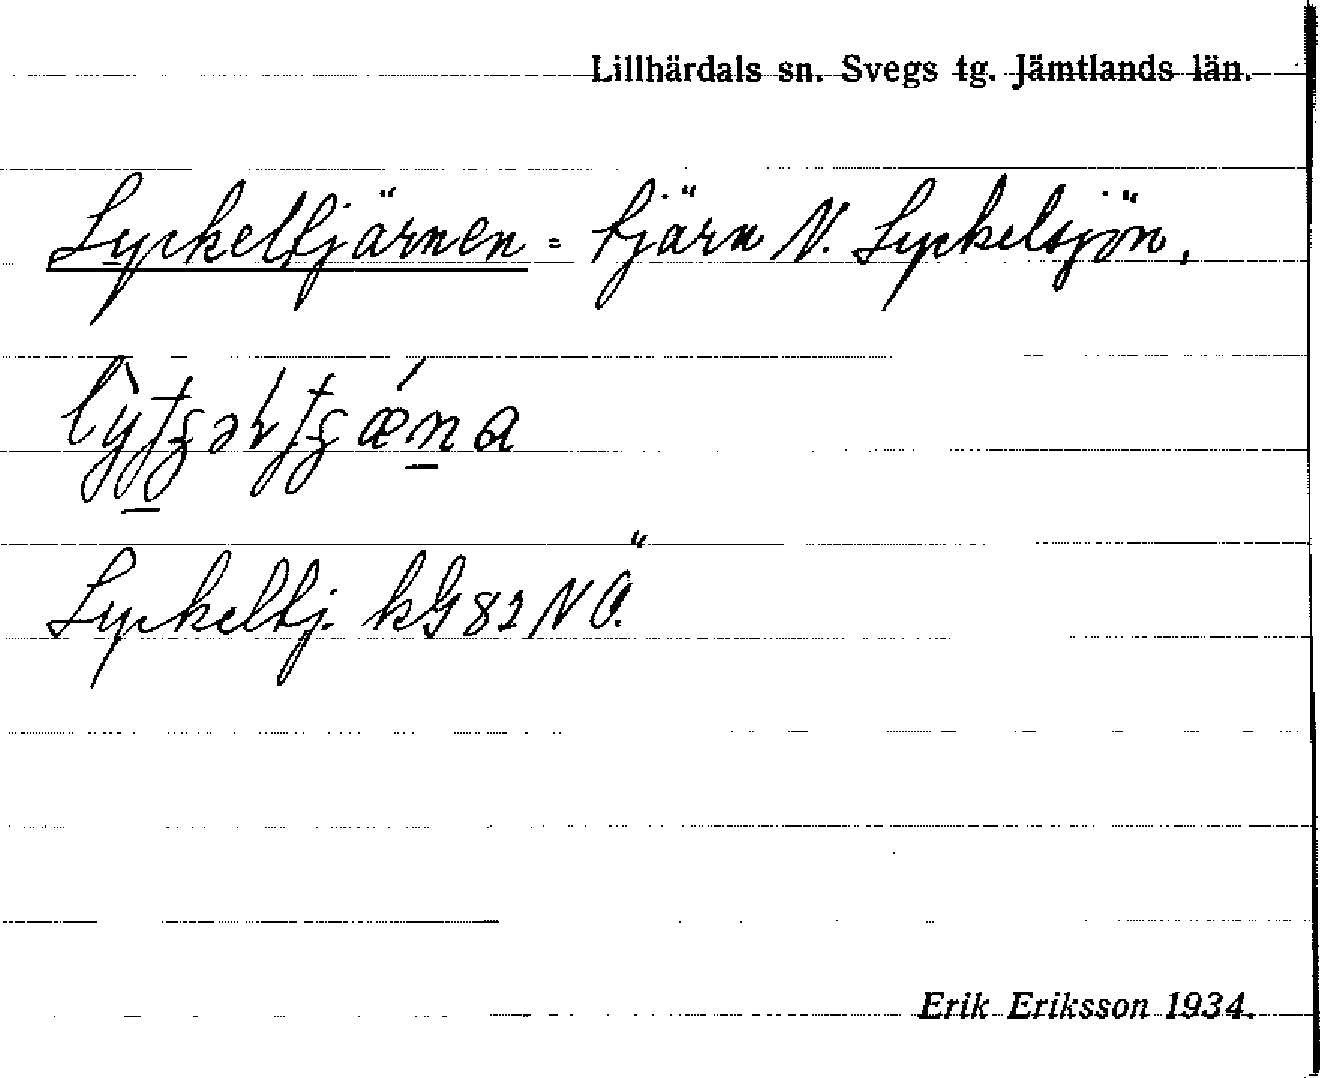 Lillhärdals sn. Svegs tg. Jämtlands län.
Lyckeltjärnen = tjärn N. Lyckelsjön.
Lyckeltj. kG 82 NÖ.
Erik Eriksson 1934.